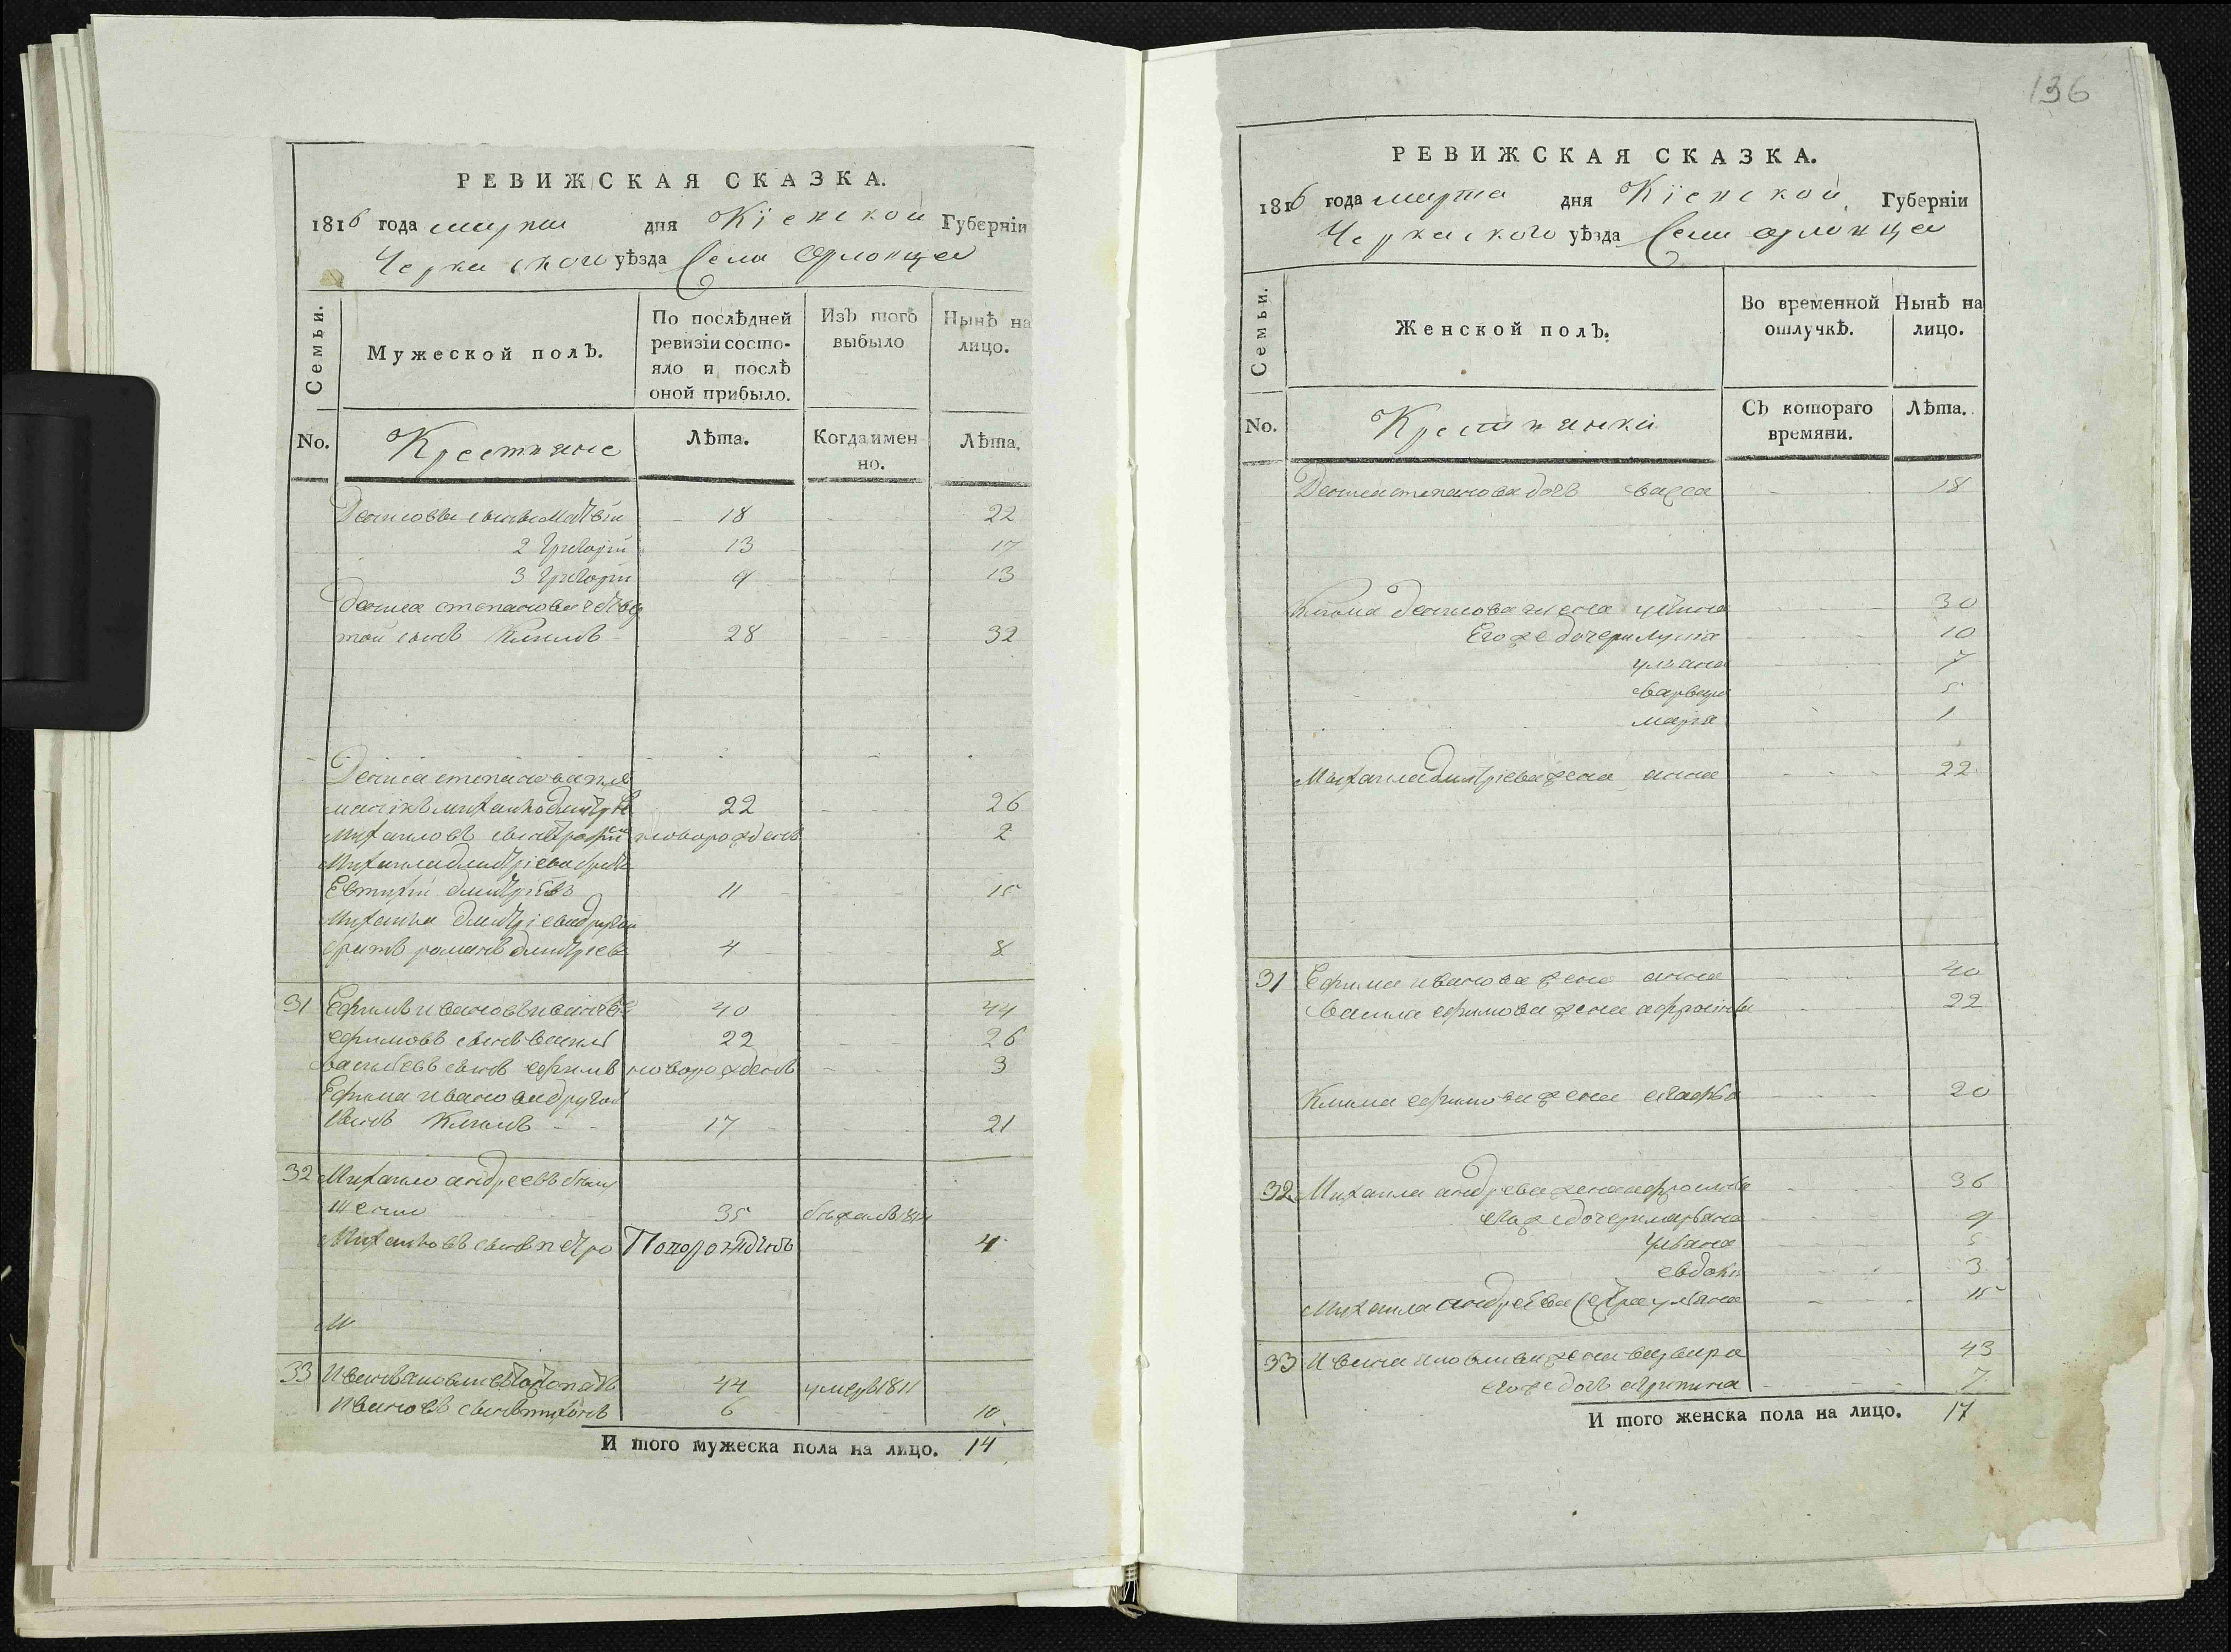 136
РЕВИЖСКАЯ СКАЗКА.
1816 года марта дня Кіевской Губерніи
Черкаского уѣзда Села Орловца
Семьи.
Мужеской полъ.
По послѣдней ревизіи состо-
яло и послѣ оной прибыло.
Изъ того выбыло
Нынѣ на лицо.
No.
Крестьяне
Лѣта.
Когда имен-
но.
Лѣта.
Денисовы сыновья Матвѣй 18 22
2 Григорій 13 17
3 Григорій 9 13
Дениса степанова четвер
той сынъ Климъ 28 32
Дениса степанова пле
маникъ михайло дмитріев 22 26
Михайловъ сынъ новорожденъ 2
Михайла дмитріева братъ
Евтихій дмитріевъ 11 15
Михайла дмитріева другой
братъ романъ дмитріевъ 4 8
31 Ефимъ ивановъ 40 44
ефимовъ сынъ василь 22 26
васильевъ сынъ ефимъ новорожденъ 3
Ефима иванова другой
сынъ Климъ 17 21
32 Михайло андреевъ
35 бѣжалъ 1814
Михайловъ сынъ петро Новорожденъ 4
М
33 Иванъ 44 умеръ 1811
Ивановъ сынъ тихонъ 6 10
И того мужеска пола на лицо. 14
РЕВИЖСКАЯ СКАЗКА.
1816 года марта дня Кіевской Губерніи
Черкаского уѣзда Села орловца
Семьи.
Женской полъ.
Во временной отлучкѣ.
Нынѣ на лицо.
No.
Крестьянки
Съ котораго времяни.
Лѣта.
Дениса степанова дочь васса 18
Клима денисова жена 30
Его же дочери 10
ульяна 7
варвара 5
марія 1
Михайла дмитріева жена анна 22
31 Ефима иванова жена анна 40
Василя ефимова жена 22
Клима ефимова жена агафья 20
32 Михайла андреева жена 36
его же дочери марьяна 9
Ульяна 5
евдокія 3
Михайла андреева сестра ульяна 15
33 Ивана жена варвара 43
его же дочь 7
И того женска пола на лицо. 17